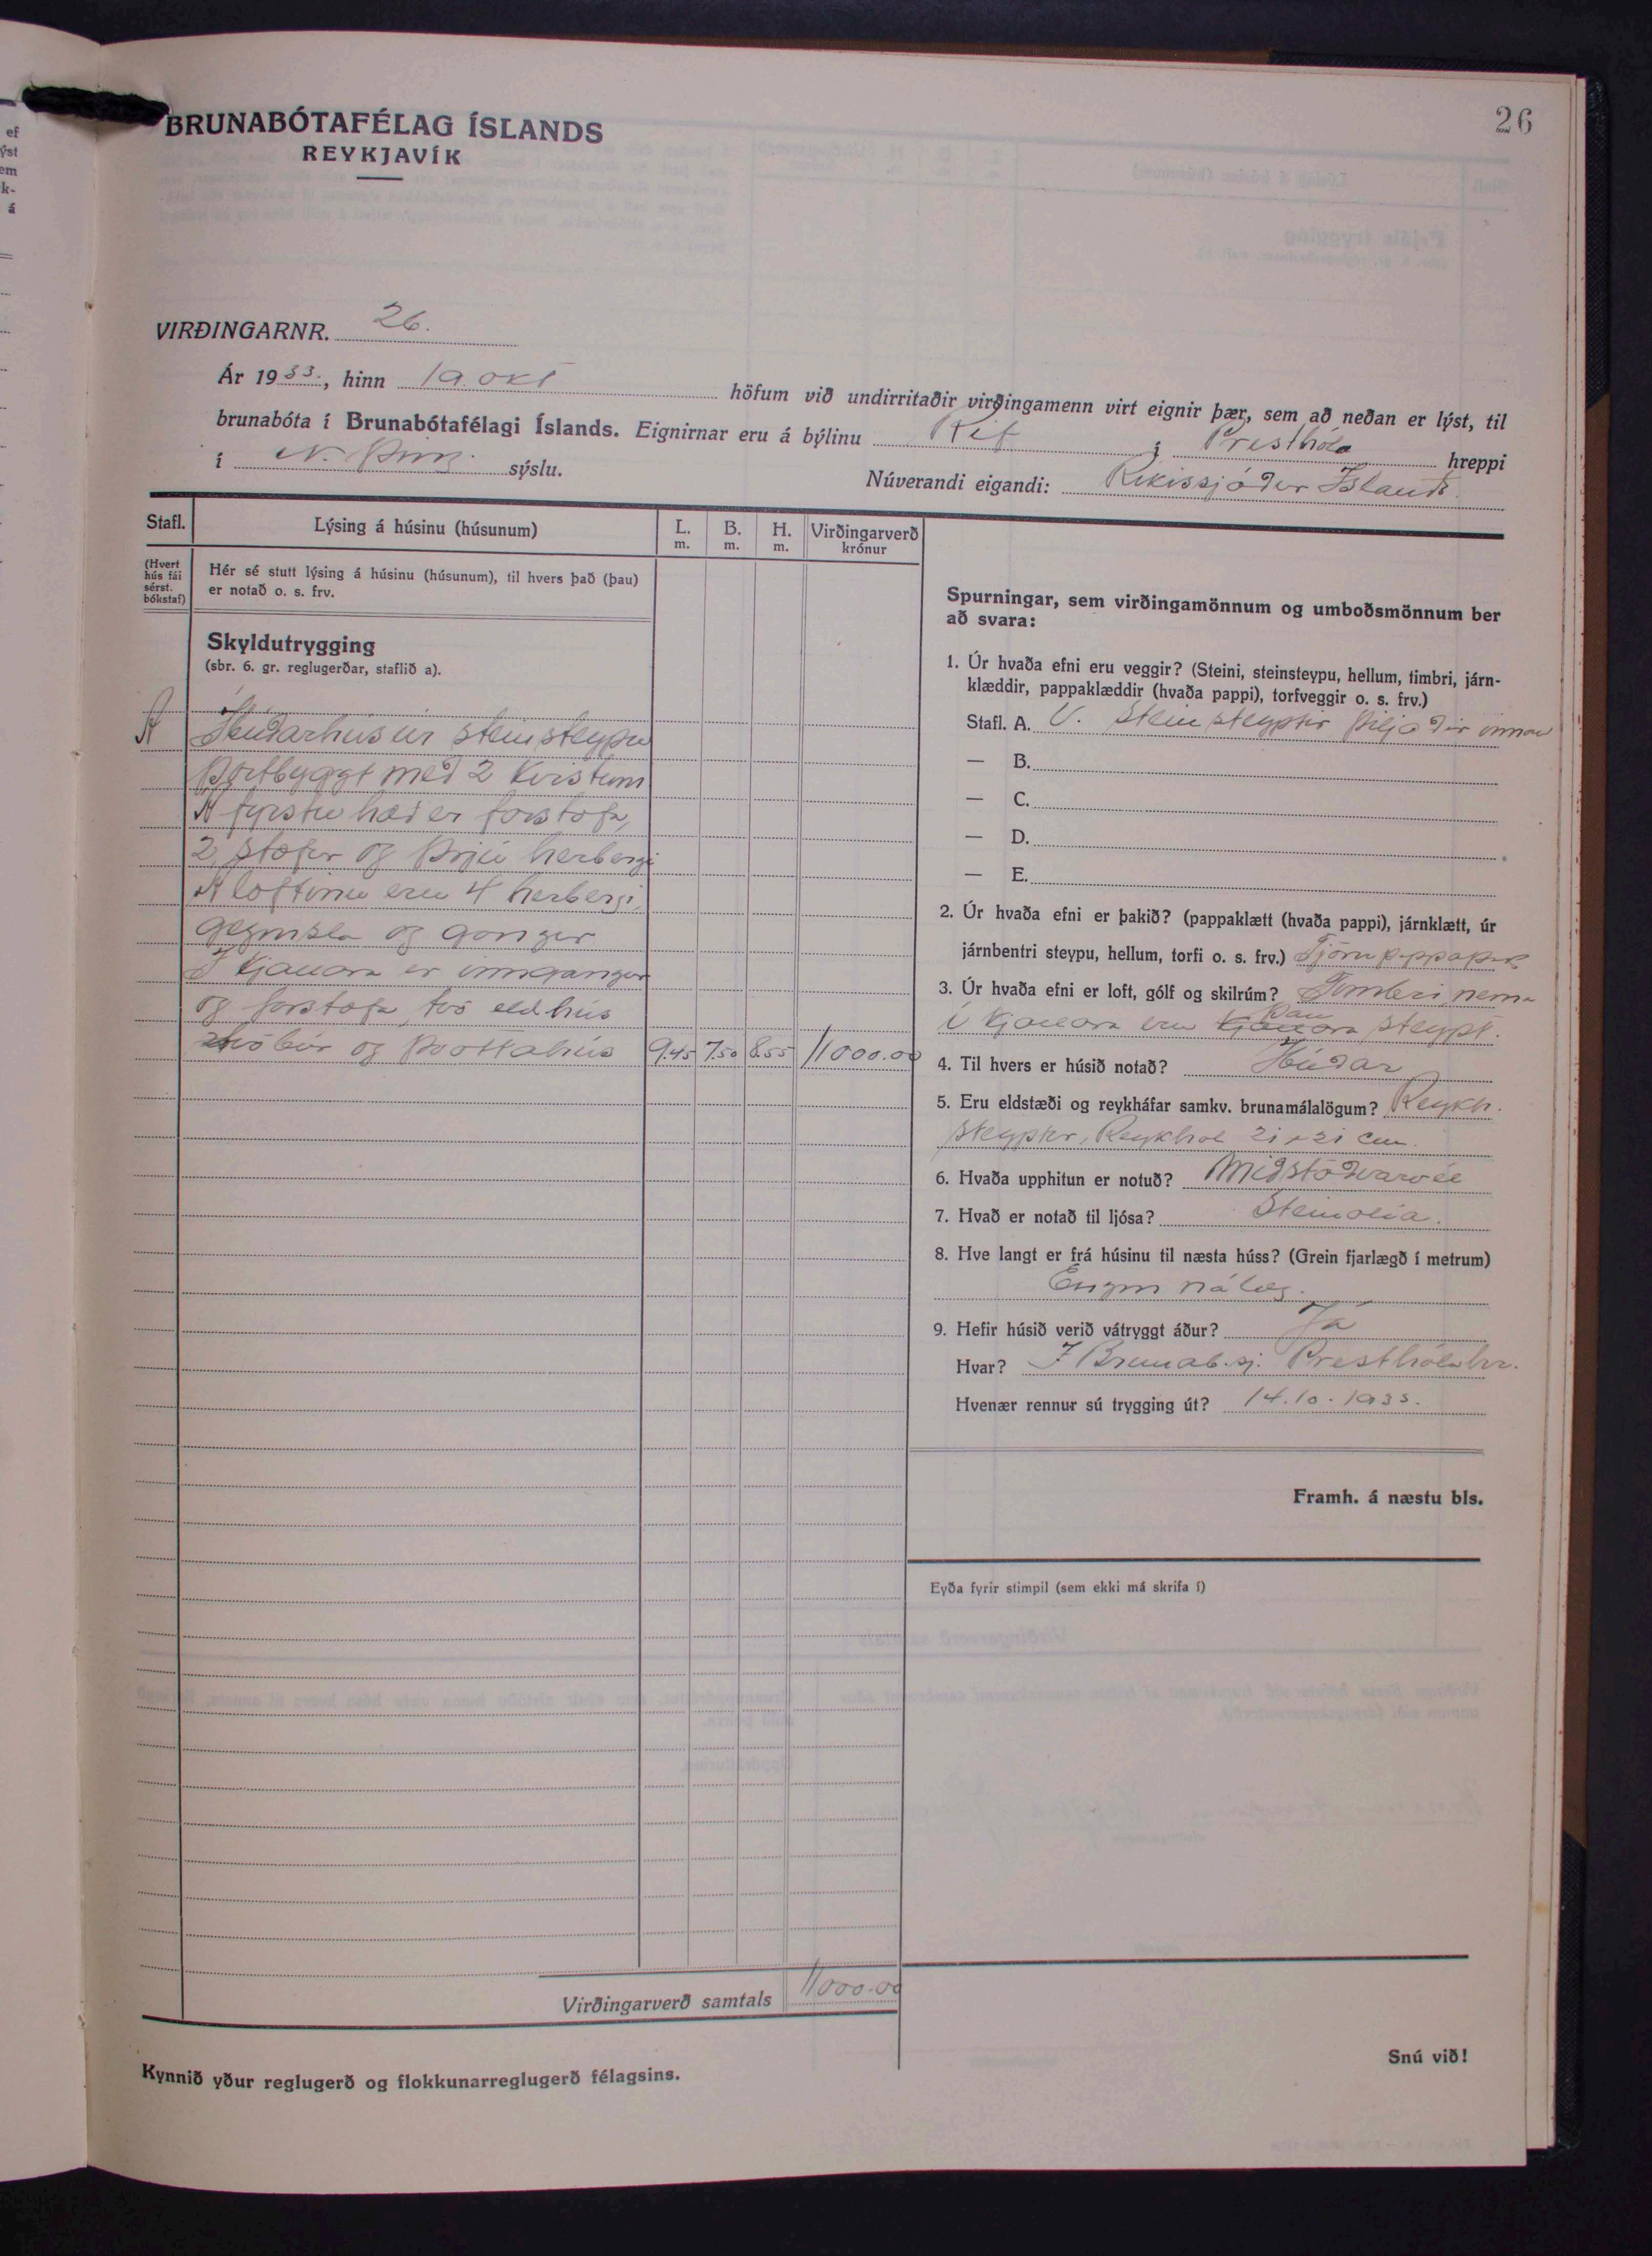 26
BRUNABÓTAFÉLAG ÍSLANDS
REYKJAVÍK
VIRÐINGARNR. 26.
Ár 1933., hinn 19. okt höfum við undirritaðir virðingamenn virt eignir þær, sem að neðan er lýst, til
brunabóta í Brunabótafélagi Íslands. Eignirnar eru á býlinu Rif í Presthóla hreppi
í N. Þing. sýslu. Núverandi eigandi: Ríkissjóður Íslands.
Stafl. Lýsing á húsinu (húsunum) L. m. B. m. H. m. Virðingarverð krónur
(Hvert hús fái sérst. bókstaf)
Hér sé stutt lýsing á húsinu (húsunum), til hvers það (þau)
er notað o. s. frv.
Skyldutrygging
(sbr. 6. gr. reglugerðar, staflið a).
A Íbúðarhús úr steinsteypu
portbyggt með 2 kvistum
Á fyrstu hæð er forstofa,
2 stofur og þrjú herbergi
Á loftinu eru 4 herbergi,
geymsla og gangur
Í kjallara er inngangur
og forstofa, tvö eldhús
búr og þvottahús 9.45 7.50 8.55 11000.00
Virðingarverð samtals 11000.00
Kynnið yður reglugerð og flokkunarreglugerð félagsins.
Spurningar, sem virðingamönnum og umboðsmönnum ber
að svara:
1. Úr hvaða efni eru veggir? (Steini, steinsteypu, hellum, timbri, járn-
klæddir, pappaklæddir (hvaða pappi), torfveggir o. s. frv.)
Stafl. A. V. Steinsteyptir þiljaðir innan
— B.
— C.
— D.
— E.
2. Úr hvaða efni er þakið? (pappaklætt (hvaða pappi), járnklætt, úr
járnbentri steypu, hellum, torfi o. s. frv.) Tjörupappaþak
3. Úr hvaða efni er loft, gólf og skilrúm? Timbri, nema
í kjallara eru kjallara þau steypt.
4. Til hvers er húsið notað? Íbúðar
5. Eru eldstæði og reykháfar samkv. brunamálalögum? Reykh.
steyptur, Reykhol 21 x 21 cm.
6. Hvaða upphitun er notuð? Miðstöðvarvél
7. Hvað er notað til ljósa? Steinolía.
8. Hve langt er frá húsinu til næsta húss? (Grein fjarlægð í metrum)
Engin nálæg.
9. Hefir húsið verið vátryggt áður? Já
Hvar? Í Brunab.sj. Presthólahr.
Hvenær rennur sú trygging út? 14.10.1933.
Framh. á næstu bls.
Eyða fyrir stimpil (sem ekki má skrifa í)
Snú við!